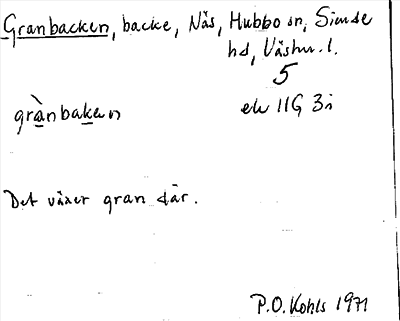 Granbacken, backe, Näs, Hubbo sn, Siende
hd, Västm. l.
5
grànbaken
ek 11G 3i
Det växer gran där.
P.O. Kohls 1971